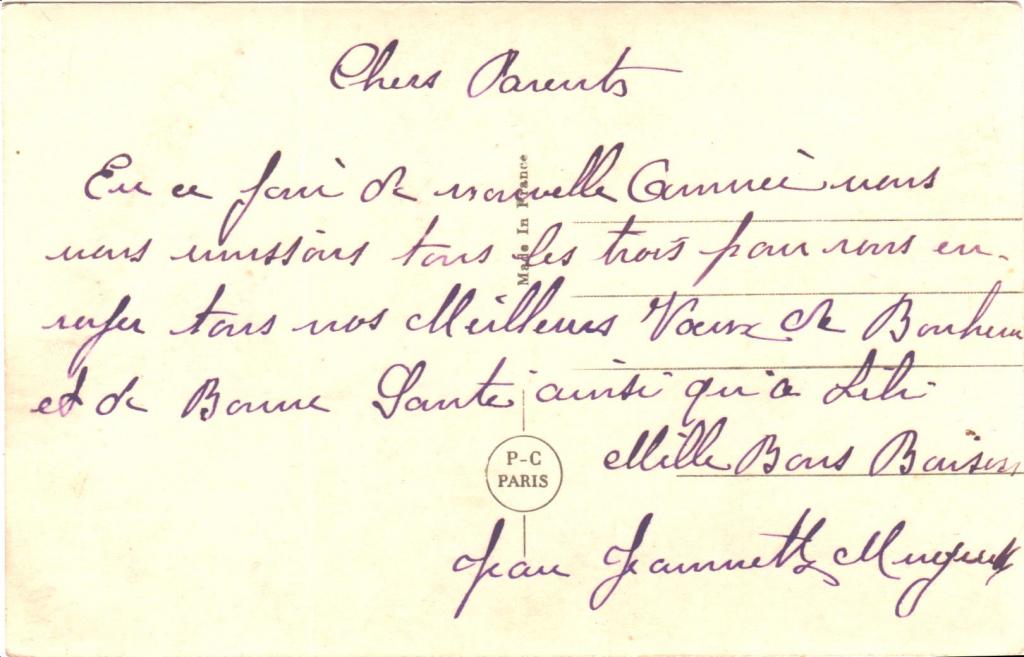 Chers Parents
En ce jour de nouvelle Année nous
nous unissons tous les trois pour vous en-
voyer tous nos Meilleurs Vœux de Bonheur
et de Bonne Santé ainsi qu'a Lili
Mille Bons Baisers
Jean Jeannette
Made In France
P-C
PARIS